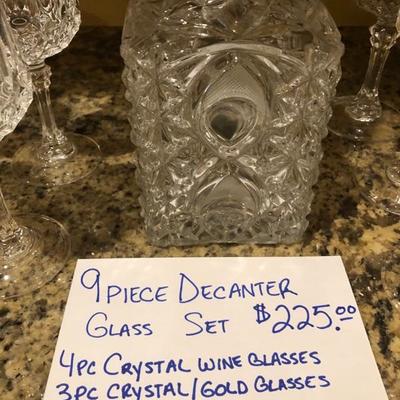 9 PIECE DECANTER
GLASS SET $225.00
4PC CRYSTAL WINE GLASSES
3PC CRYSTAL/GOLD GLASSES